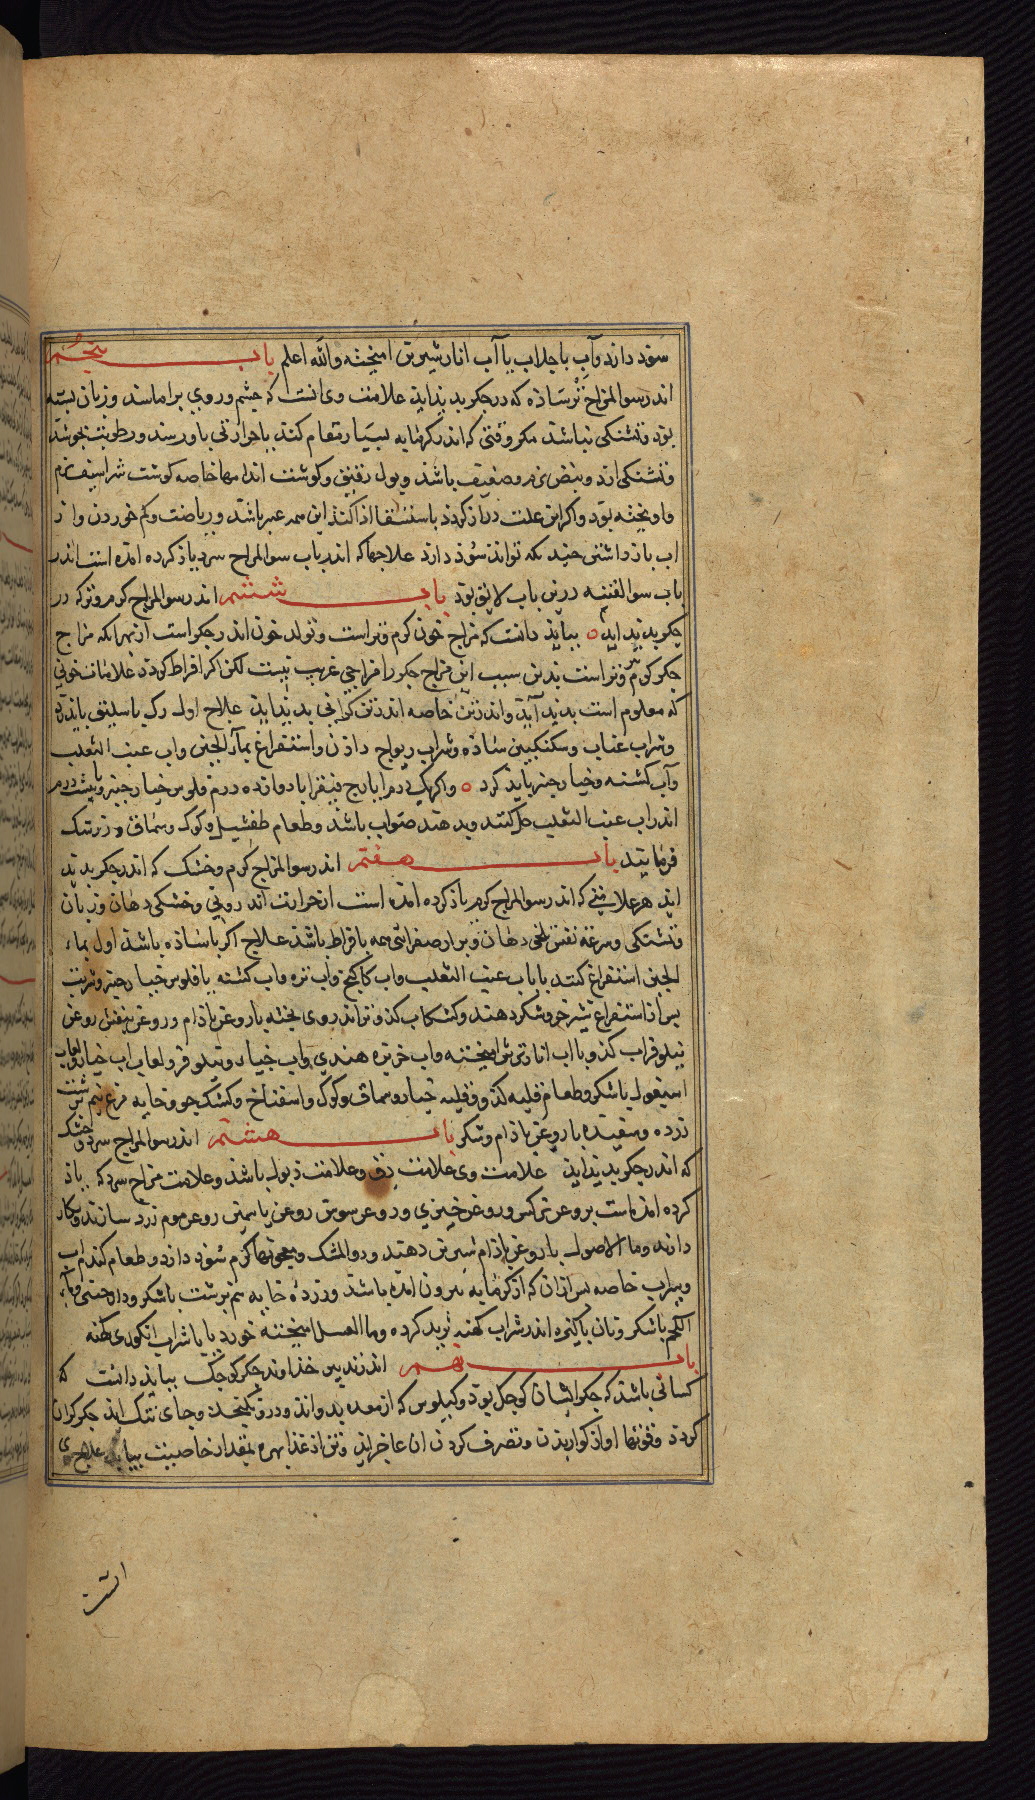 سود دارد وآب با جلاب یا آب انار شیرین امیخته والله اعلم باب پنجم
اندر سوالمزاج تر ساده که در جکر بدید اید علامت وی انست که چشم وروی براماسد وزبان بسته
بود وتشنکی نباشد مکر وقتی که اندر کرمابه بسیار مقام کند یا حرارتی باو رسد ورطوبت بجوشد
وتشنکی ارد ونبض نرم وضعیف باشد وبول رقیق وکوشت اندامها خاصه کوشت شراسیف نرم
واویخته بود واکر این علت دراز کردد باستسقا ادا کند این همه عبر باشد وریاضت وکم خوردن واز
اب باز داشتن چند بکه تواند سود دارد علاجها که اندر باب سوالمزاج سرد یاذ کرده امده است اندر
باب سوالقنیه درین باب لایق بود باب ششم اندر سوالمزاج کرم وتر که در
جکر بدید اید بباید دانست که مزاج خون کرم وتر است وتولد خون اندر جکر است ازبهر انکه مزاج
جکر کرم وتر است بدین سبب این مزاج جکر را مزاجی غریب نیست لکن اکر افراط کردد علامات خونی
که معلوم است بدید آید واندر تن خاصه اندر تن کرانی بدید اید علاج اول رک باسلیق باید زد
وشراب عناب وسکنکبین ساده وشراب ریواج دادن واستفراغ بمآءالجبن واب عنب الثعلب
وآب کشنه وخیارچنبر باید کرد واکر یک درم ایارج فیقرا با دوازده درم فلوس خیارچنبر وبیست درم
اندراب عنب الثعلب حل کنند وبدهند صواب باشد وطعام طفشیل وکوک وسماق وزرشک
فرمایند باب هفتم اندر سوالمزاج کرم وخشک که اندر جکر بدید
اید هر علامتی که اندر سوالمزاج کرم یاذ کرده امده است از حرارت اندرونی وخشکی دهان وزبان
وتشنکی وسرعه نفس تلخی دهان وبراز صفرائی همه بافراط باشد علاج اکر با ساده باشد اول بماء
الجبن استفراغ کنند یا باب عنب الثعلب واب کاکنج واب تره واب کشنه با فلوس خیارچنبر وشربت
پس از استفراغ شیر خر وشکر دهند وکشکاب کدو تر اندروی پخته با روغن باذام وروغن بنفش روغن
نیلوفر اب کدو با اب انار ترش امیخته واب خربزه هندی واب خیار ونیلوفر ولعاب اب خیار ولعاب
اسبغول با شکر وطعام قلیه کدو وقلیه خیار وسماق وکوک واسفناخ وکشک جو وخایه مرغ نیم برشت
زرده وسفیده با روغن باذام وشکر باب هشتم اندر سوالمزاج سرد وخشک
که اندر جکر بدید اید علامت وی علامت دق وعلامت ذبول باشد وعلامت مزاج سرد که یاذ
کرده امده است بروغن نرکس وروغن خیری وروغن سوسن روغن یاسمین روغن موم زرد سازند وبکار
دارند وما الاصول با روغن باذام شیرین دهند ودوالمشک ومعجونها کرم سود دارد وطعام کندم اب
وسراب خاصه پس ازان که از کرمابه بیرون امده باشد وزرده خایه نیم برشت با شکر ودارچینی وماء
اللحم با شکر ونان پاکیزه اندر شراب کهنه ثرید کرده وما العسل امیخته خورد یا با شراب انکوری کهنه
باب نهم اندر تدبیر خداوند جکر کوچک بباید دانست که
کسانی باشند که جکر ایشان کوچک بود وکیلوس که از معده بدو اند ودرو نکنجد وجای تنک اید جکر کران
کردد وقوتها او از کواریدن وتصرف کردن ان عاجز اید وتن از غذا بهره بمقدار حاجت نیابد علاج وی
است